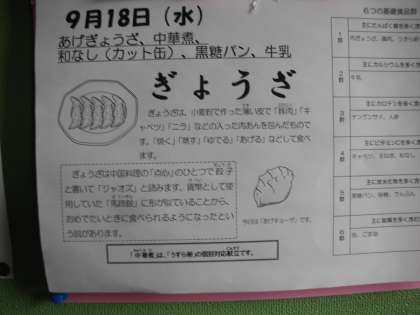 9月18日（水）
あげぎょうざ、中華煮、
和なし（カット缶）、黒糖パン、牛乳
ぎょうざ
ぎょうざは、小麦粉で作った薄い皮で「豚肉」「キ
ャベツ」「ニラ」などの入った肉あんを包んだものです。
「焼く」「蒸す」「ゆでる」「あげる」などして食べ
ます。
ぎょうざは中国料理の「点心」のひとつで餃子
と書いて「ジャオズ」と読みます。貨幣として使用
していた「馬蹄銀」に形が似ていることから、
おめでたいときに食べられるようになったとい
う説があります。
今日は「あげギョーザ」です。
「中華煮」は、「うずら卵」の個別対応献立です。
6つの基礎食品群
1群
2群
牛乳
3群
チンゲンサイ、人参
4群
5群
6群
油、ごま油